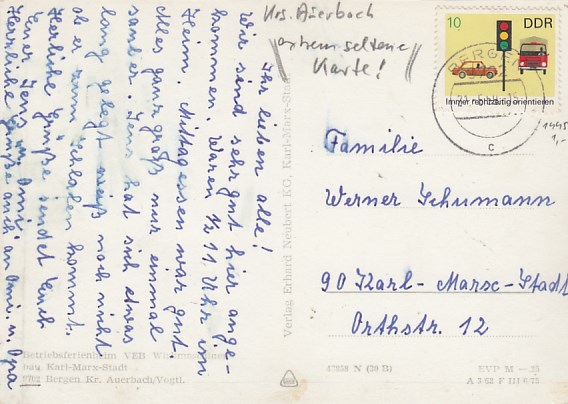 Krs. Auerbach
extrem seltene
Karte!
Ihr lieben alle!
Wir sind sehr gut hier ange-
kommen. Waren ½ 11 Uhr im
Heim. Mittagessen war gut
Alles ganz groß nur einmal
sauber. Jens hat sich etwas
lang gelegt weiß noch nicht
ob er zum Schlafen kommt.
Herzliche Grüße sendet Euch
Euer Jens u.
Herzliche Grüße auch an Omi u. Opa
10 DDR
Immer rechtzeitig orientieren
BERGEN
c
1445
1,-
Familie
Werner Schumann
90 Karl-Marx-Stadt
Orthstr. 12
Verlag Erhard Neubert KG, Karl-Marx-Stadt
Betriebsferienheim VEB
bau Karl-Marx-Stadt
9702 Bergen Kr. Auerbach/Vogtl.
N (39 B)
EVP M —,25
A 3/62 F III 6/75